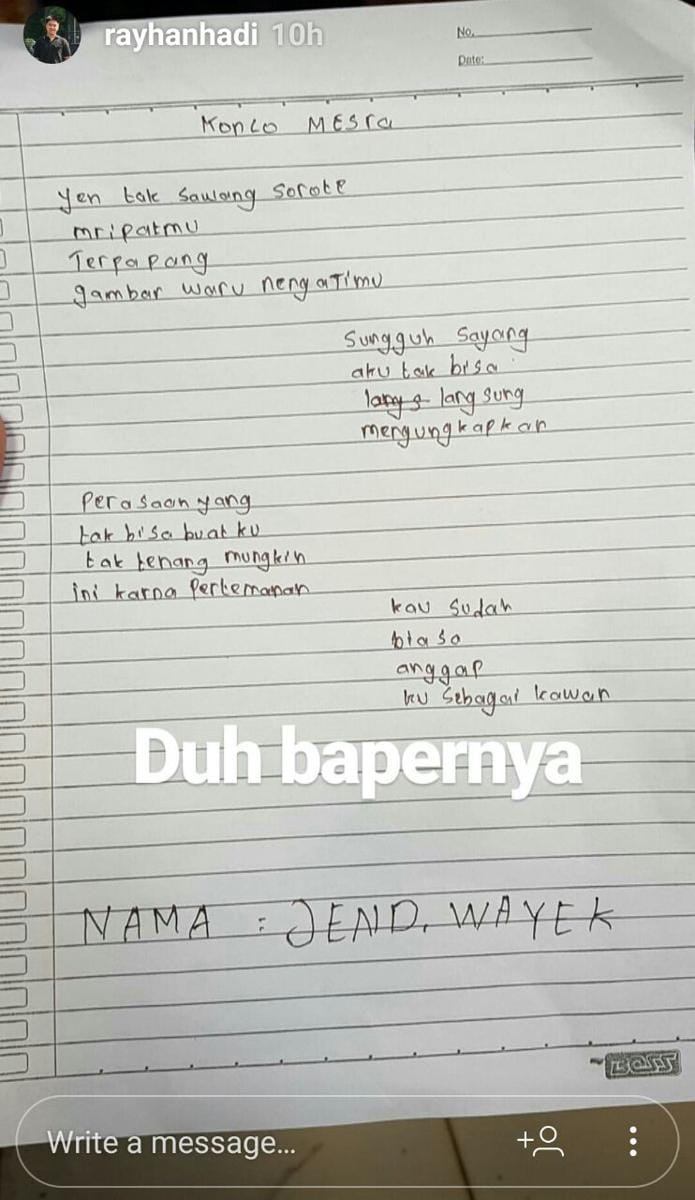 rayhanhadi 10h
No.
Date:
Konco MESra
Yen tak Sawang Sorote
mripatmu
Terpapang
gambar waru nengatimu
Sungguh Sayang
aku tak bisa
langs langsung
mengungkapkan
Perasaan yang
tak bisa buat ku
tak tenang mungkin
ini karna Pertemanan
kau Sudah
biasa
anggap
ku Sebagai kawan
Duh bapernya
NAMA : JEND. WAYEK
BOSS
Write a message...